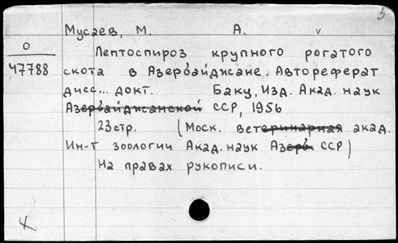 5
Мусаев, М. А. v
О
Лептоспироз крупного рогатого
47788
скота в Азербайджане. Автореферат
дисс... докт. Баку, Изд. Акад. наук
Азербайджанской ССР, 1956
23стр. (Моск. ветеринарная акад.
Ин-т зоологии Акад. наук Азерб ССР)
На правах рукописи.